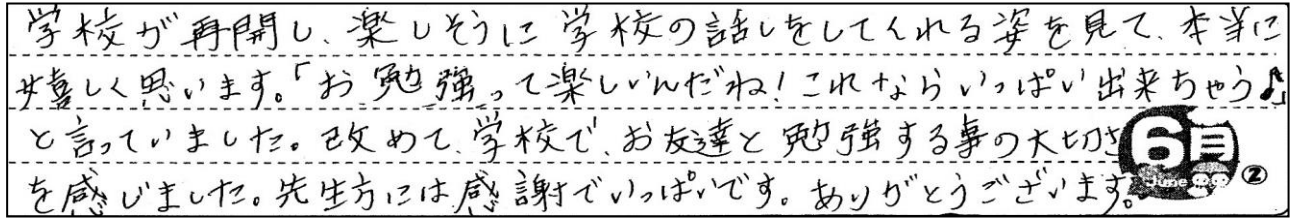 学校が再開し、楽しそうに学校の話しをしてくれる姿を見て、本当に
嬉しく思います。「お勉強って楽しいんだね!これならいっぱい出来ちゃう♪」
と言っていました。改めて、学校で、お友達と勉強する事の大切さ
を感じました。先生方には感謝でいっぱいです。ありがとうございます。
6月
June
②